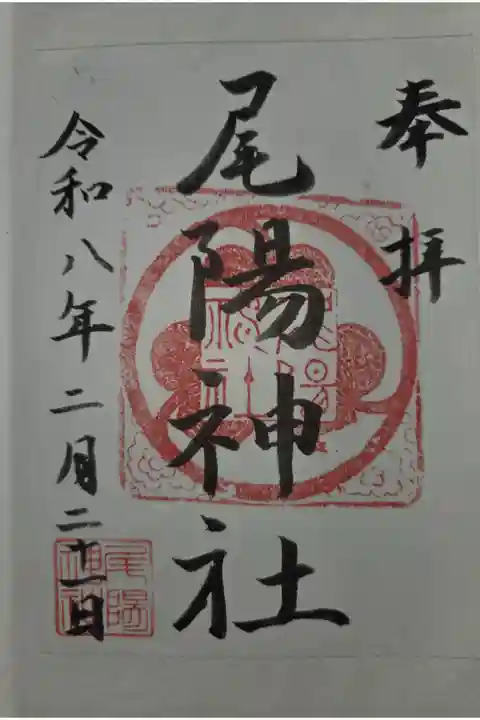 奉拝
尾陽神社
令和八年二月二十一日
尾陽
神社